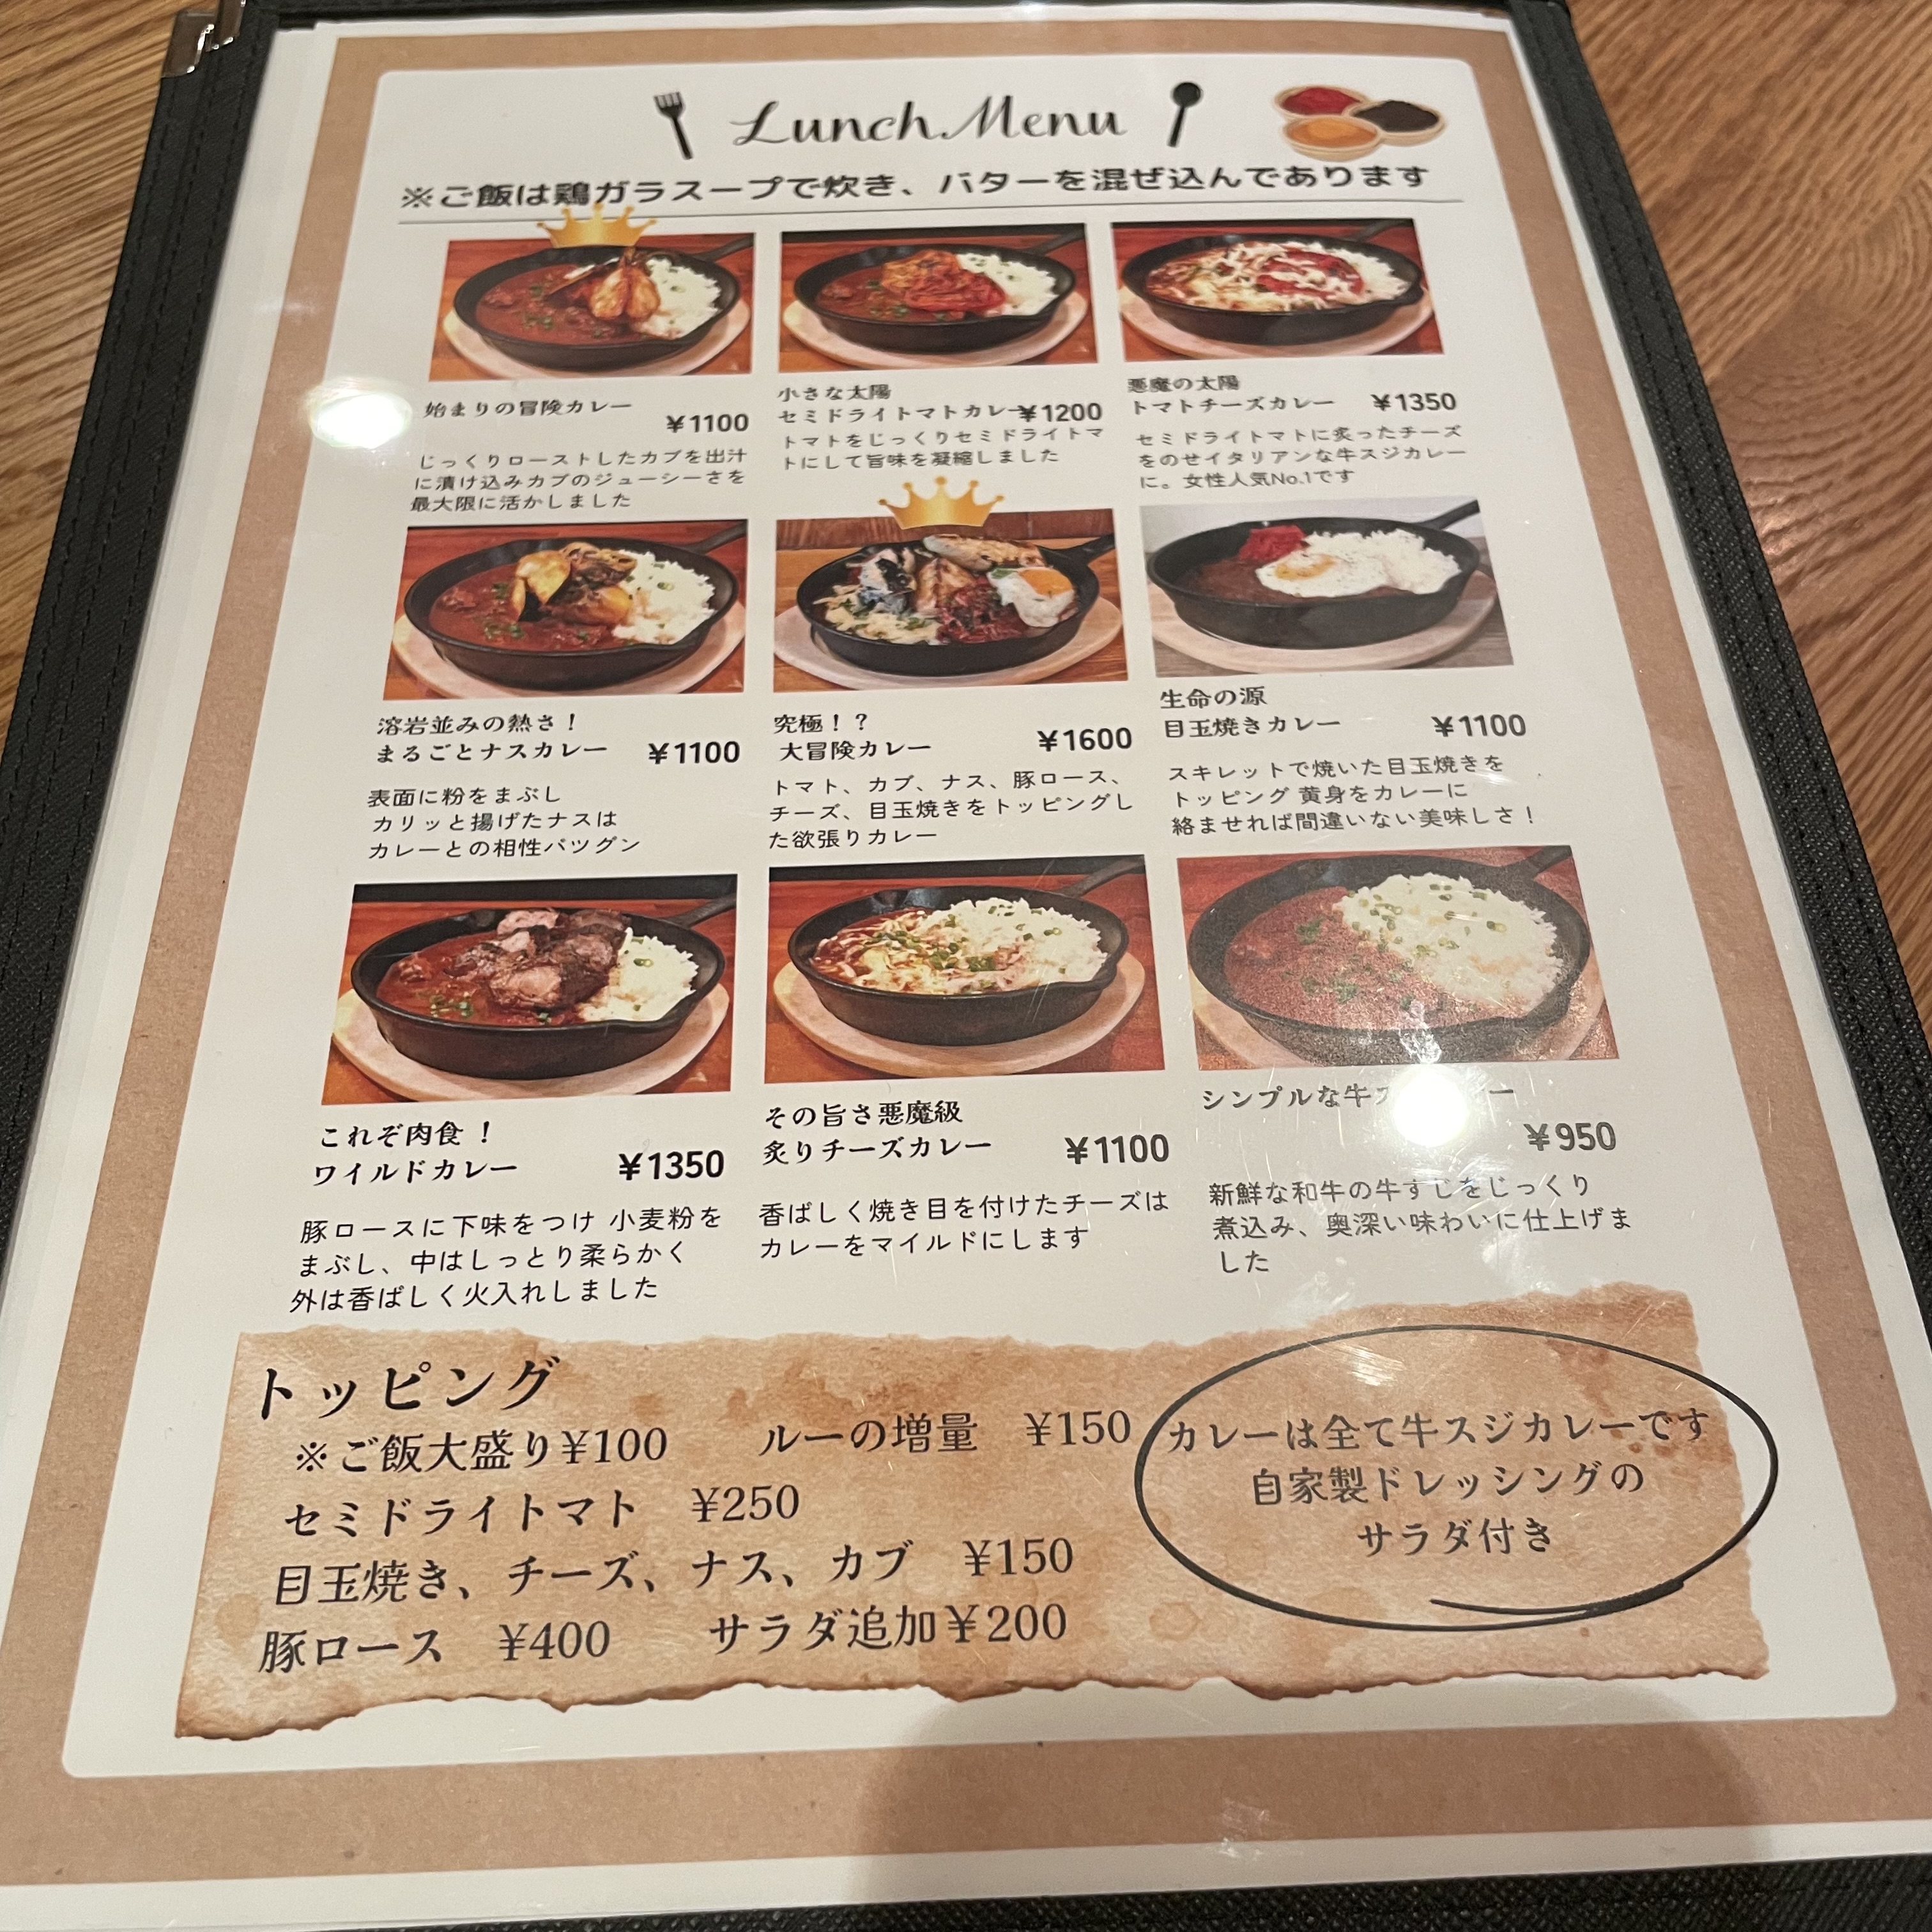 Lunch Menu
※ご飯は鶏ガラスープで炊き、バターを混ぜ込んであります
始まりの冒険カレー
¥1100
じっくりローストしたカブを出汁
に漬け込みカブのジューシーさを
最大限に活かしました
小さな太陽
セミドライトマトカレー ¥1200
トマトをじっくりセミドライトマ
トにして旨味を凝縮しました
悪魔の太陽
トマトチーズカレー ¥1350
セミドライトマトに炙ったチーズ
をのせイタリアンな牛スジカレー
に。女性人気No.1です
溶岩並みの熱さ！
まるごとナスカレー ¥1100
表面に粉をまぶし
カリッと揚げたナスは
カレーとの相性バツグン
究極！？
大冒険カレー ¥1600
トマト、カブ、ナス、豚ロース、
チーズ、目玉焼きをトッピングし
た欲張りカレー
生命の源
目玉焼きカレー ¥1100
スキレットで焼いた目玉焼きを
トッピング 黄身をカレーに
絡ませれば間違いない美味しさ！
これぞ肉食！
ワイルドカレー ¥1350
豚ロースに下味をつけ 小麦粉を
まぶし、中はしっとり柔らかく
外は香ばしく火入れしました
その旨さ悪魔級
炙りチーズカレー ¥1100
香ばしく焼き目を付けたチーズは
カレーをマイルドにします
シンプルな牛
¥950
新鮮な和牛の牛すじをじっくり
煮込み、奥深い味わいに仕上げま
した
トッピング
※ご飯大盛り¥100 ルーの増量 ¥150
セミドライトマト ¥250
目玉焼き、チーズ、ナス、カブ ¥150
豚ロース ¥400 サラダ追加¥200
カレーは全て牛スジカレーです
自家製ドレッシングの
サラダ付き